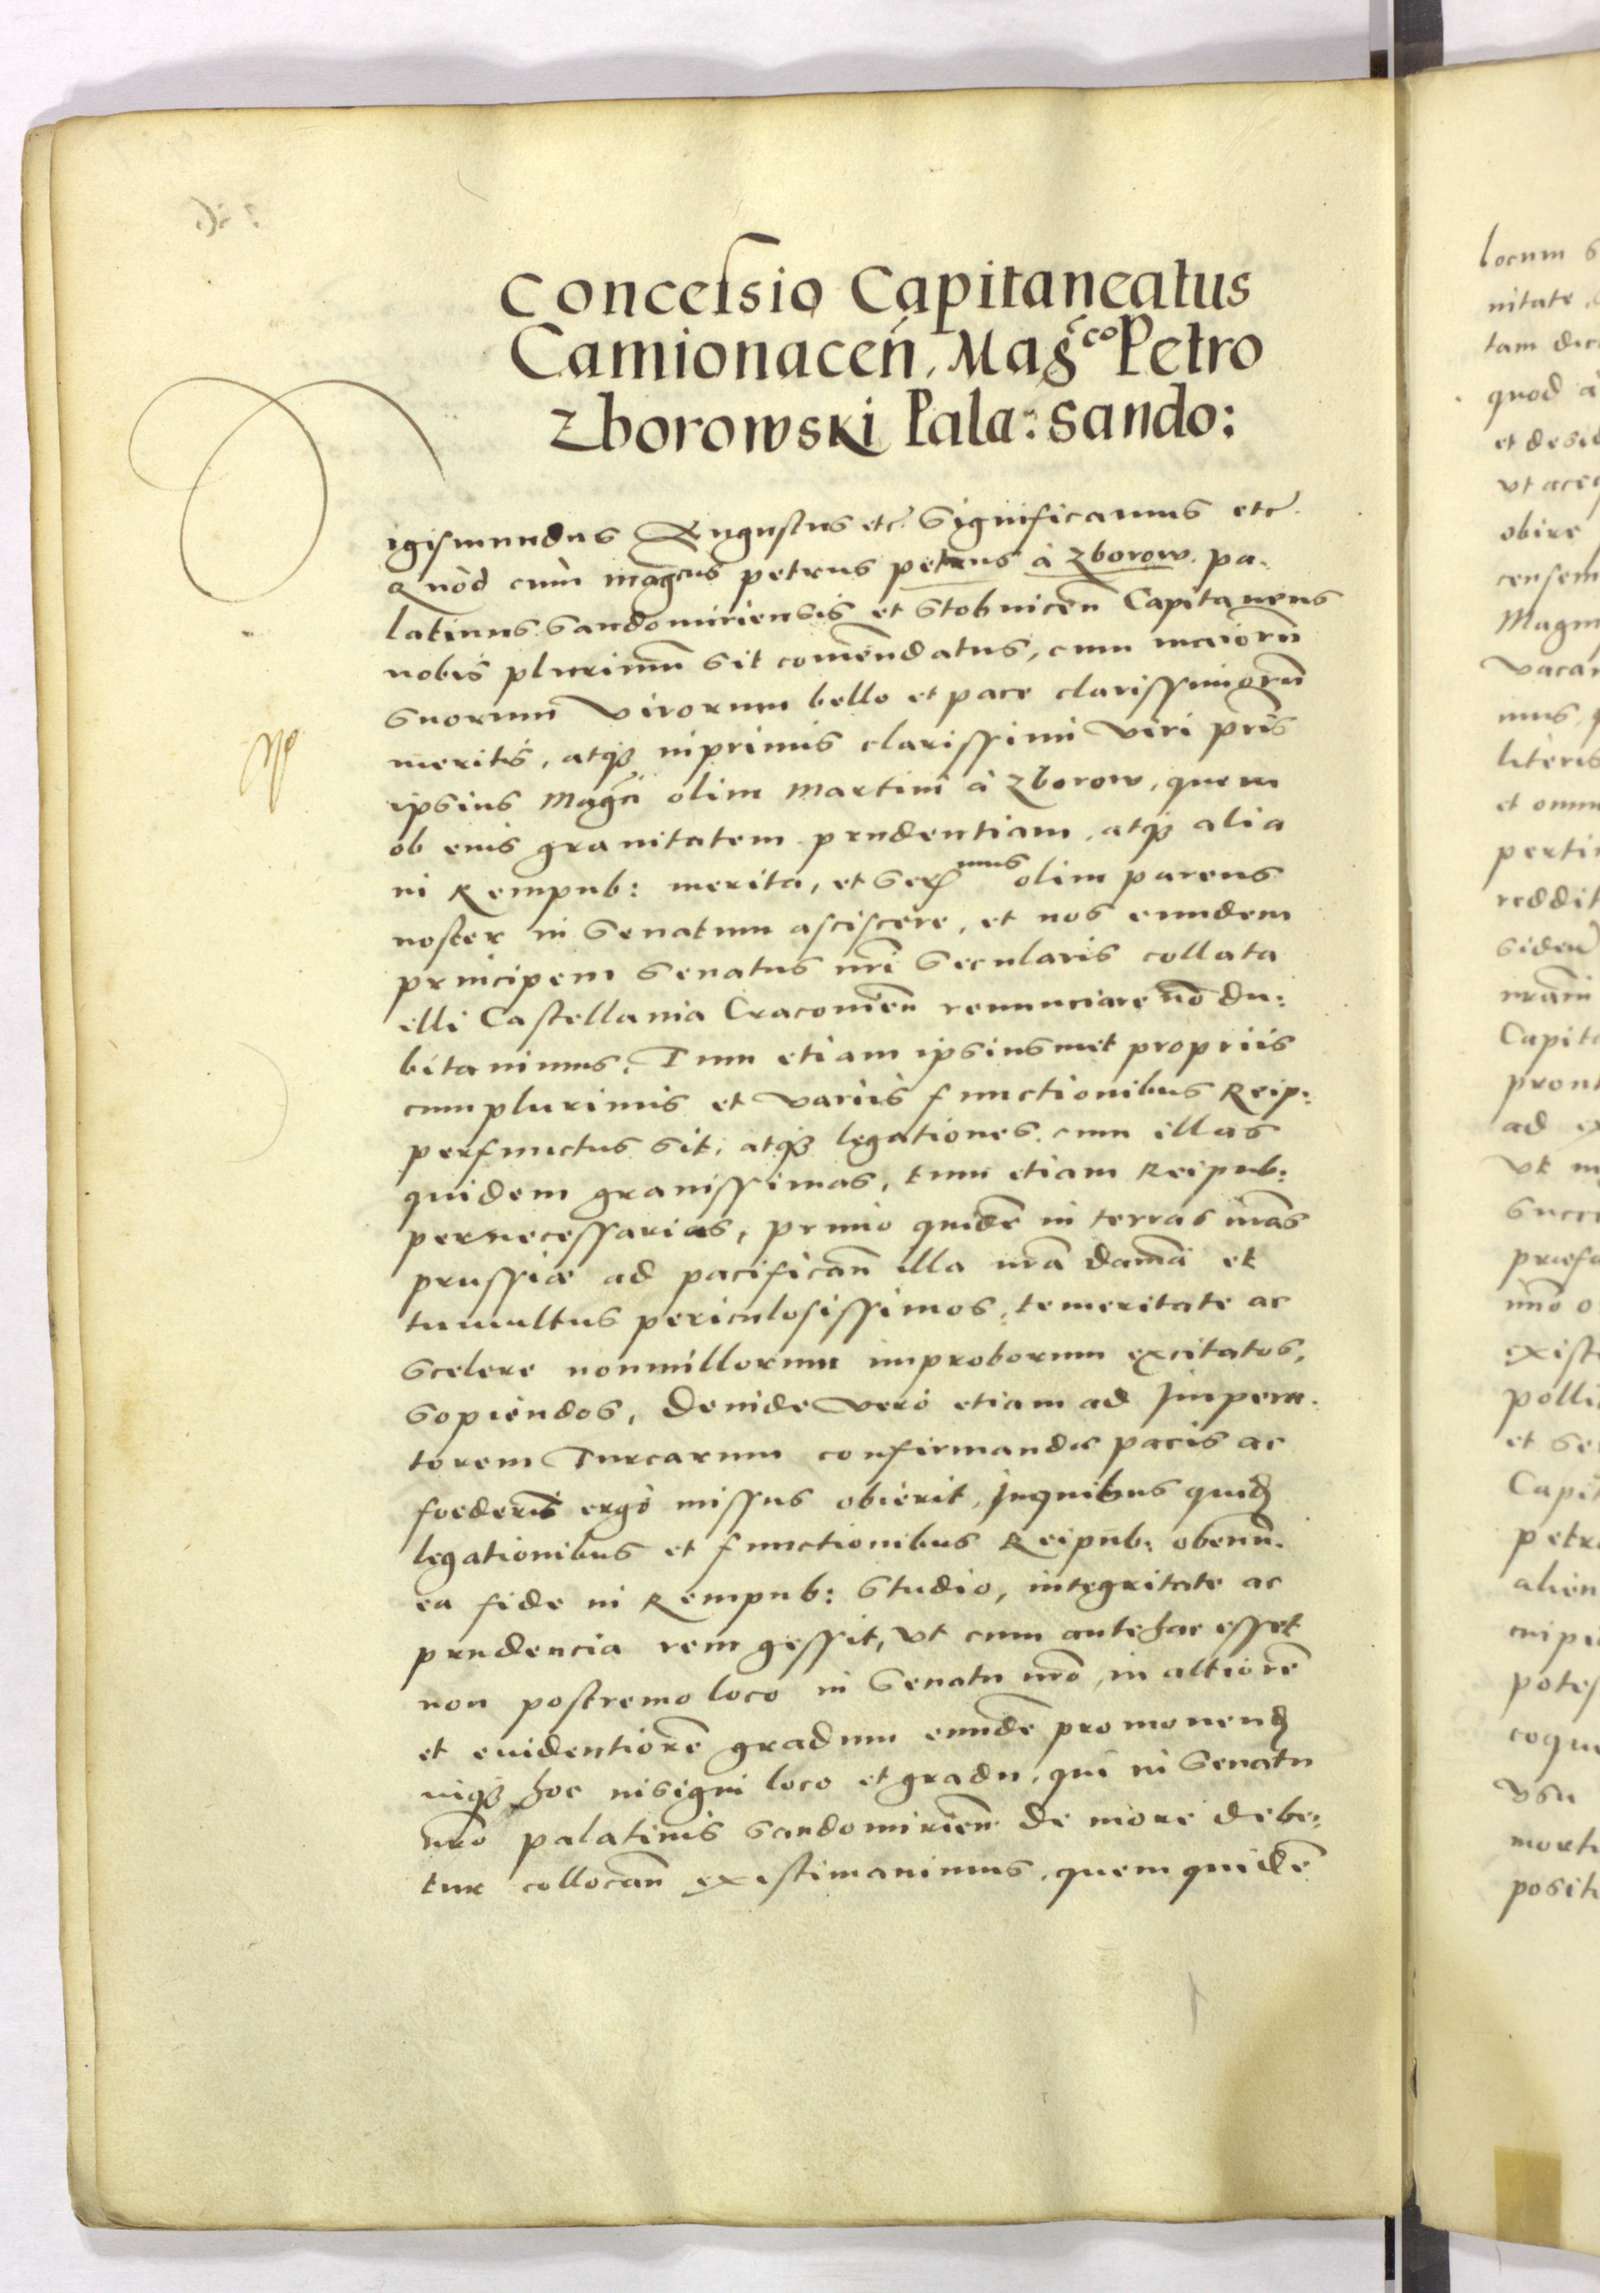 Concessio Capitaneatus
Camionaceñ. Mag^co Petro
Zborowski Pala: Sando:
igismundus Augustus etc. Significamus etc.
Quòd cùm mag̃cus petrus petrus à Zborow. pa-
latinus Sandomiriensis et Stobniceñ Capitaneus
nobis plurimũ sit com̃endatus, cum maiorũ
suorum Virorum bello et pace clarissimorũ
meritis, atq₃ inprimis clarissimi Viri pr̃is
ipsius Mag̃ci olim Martini à Zborow, quem
ob eius grauitatem prudentiam, atq₃ alia
in Rempub: merita, et Ser^mus olim parens
noster in Senatum asciscere, et nos eundem
principem Senatus nr̃i Secularis collata
illi Castellania Cracouieñ renunciare nõ du:
bitauimus. Tum etiam ipsiusmet propriis
cum plurimis et variis functionibus Reip:
perfunctus sit, atq₃ legationes cum illas
quidem grauissimas, tum etiam Reipub:
pernecessarias, primo quidẽ in terras nr̃as
prussiæ ad pacificañ illa nr̃a dam̃a et
tumultus periculosissimos, temeritate ac
scelere nonnullorum improborum excitatos,
sopiendos, Deinde vero etiam ad Impera-
torem Turcarum confirmandæ pacis ac
foederis ergò missus obierit, Inquibus quid̃
legationibus et functionibus Reipub: obeun̄.
ea fide in Rempub: Studio, integritate ac
prudencia rem gessit, vt cum antehac esset
non postremo loco in Senatu nr̃o, in altiorẽ
et euidentiorẽ gradum eundẽ promouend̃
inq₃ hoc insigni loco et gradu, qui in Senatu
nr̃o palatinis Sandomirieñ de more debe:
tur collocañ existimauimus, quem quidẽ
locum
nitate
quod
obire
vacan
literis
et omn
reddit
Capita
ad
Capit
petr
alien
potes
mort
posit